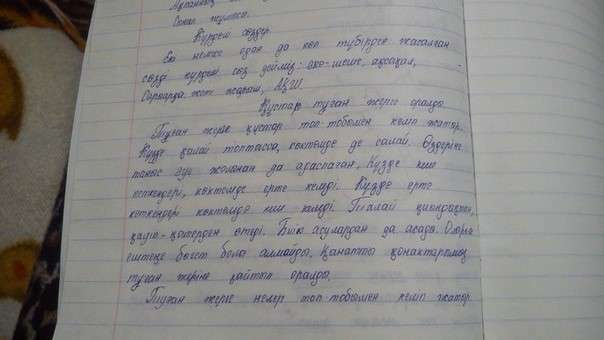 Сөнші жұмыса.
Күрделі сөздер
Екі немесе одан да көп түбірден жасалған
сөзді күрделі сөз дейміз: әке-шеше, ақсақал,
Сарыарқа, жат жараш, АҚШ.
Құстар туған жерге оралды
Туған жерге құстар топ-тобымен келіп жатыр.
Күзде қалай топтасса, көктемде де солай. Өздеріне
таныс әуе жолынан да адаспаған. Күзде кеш
кеткендері, көктемде ерте келеді. Күзде ерте
кеткендері көктемде кеш келеді. Талай қиындықтан,
қауіп-қатерден өтеді. Биік асулардан да асады. Оларға
ештеңе бөгет бола алмайды. Қанатты қонақтарымыз
туған жеріне қайтып оралды.
Туған жерге нелер топ-тобымен келіп жатыр